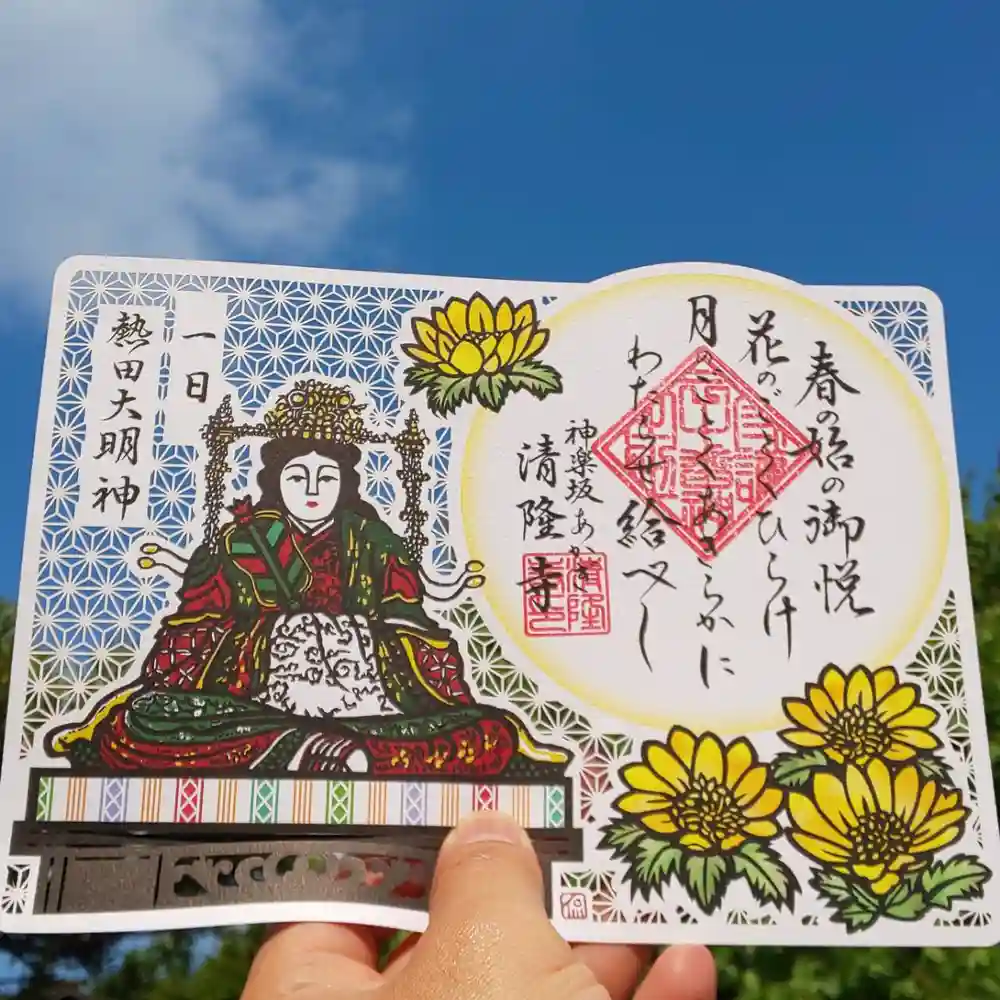 春の始の御悦
花のごとくひらけ
月のごとくあきらかに
わたらせ給べし
神楽坂あかぎ
清隆寺
清隆
一日
熱田大明神